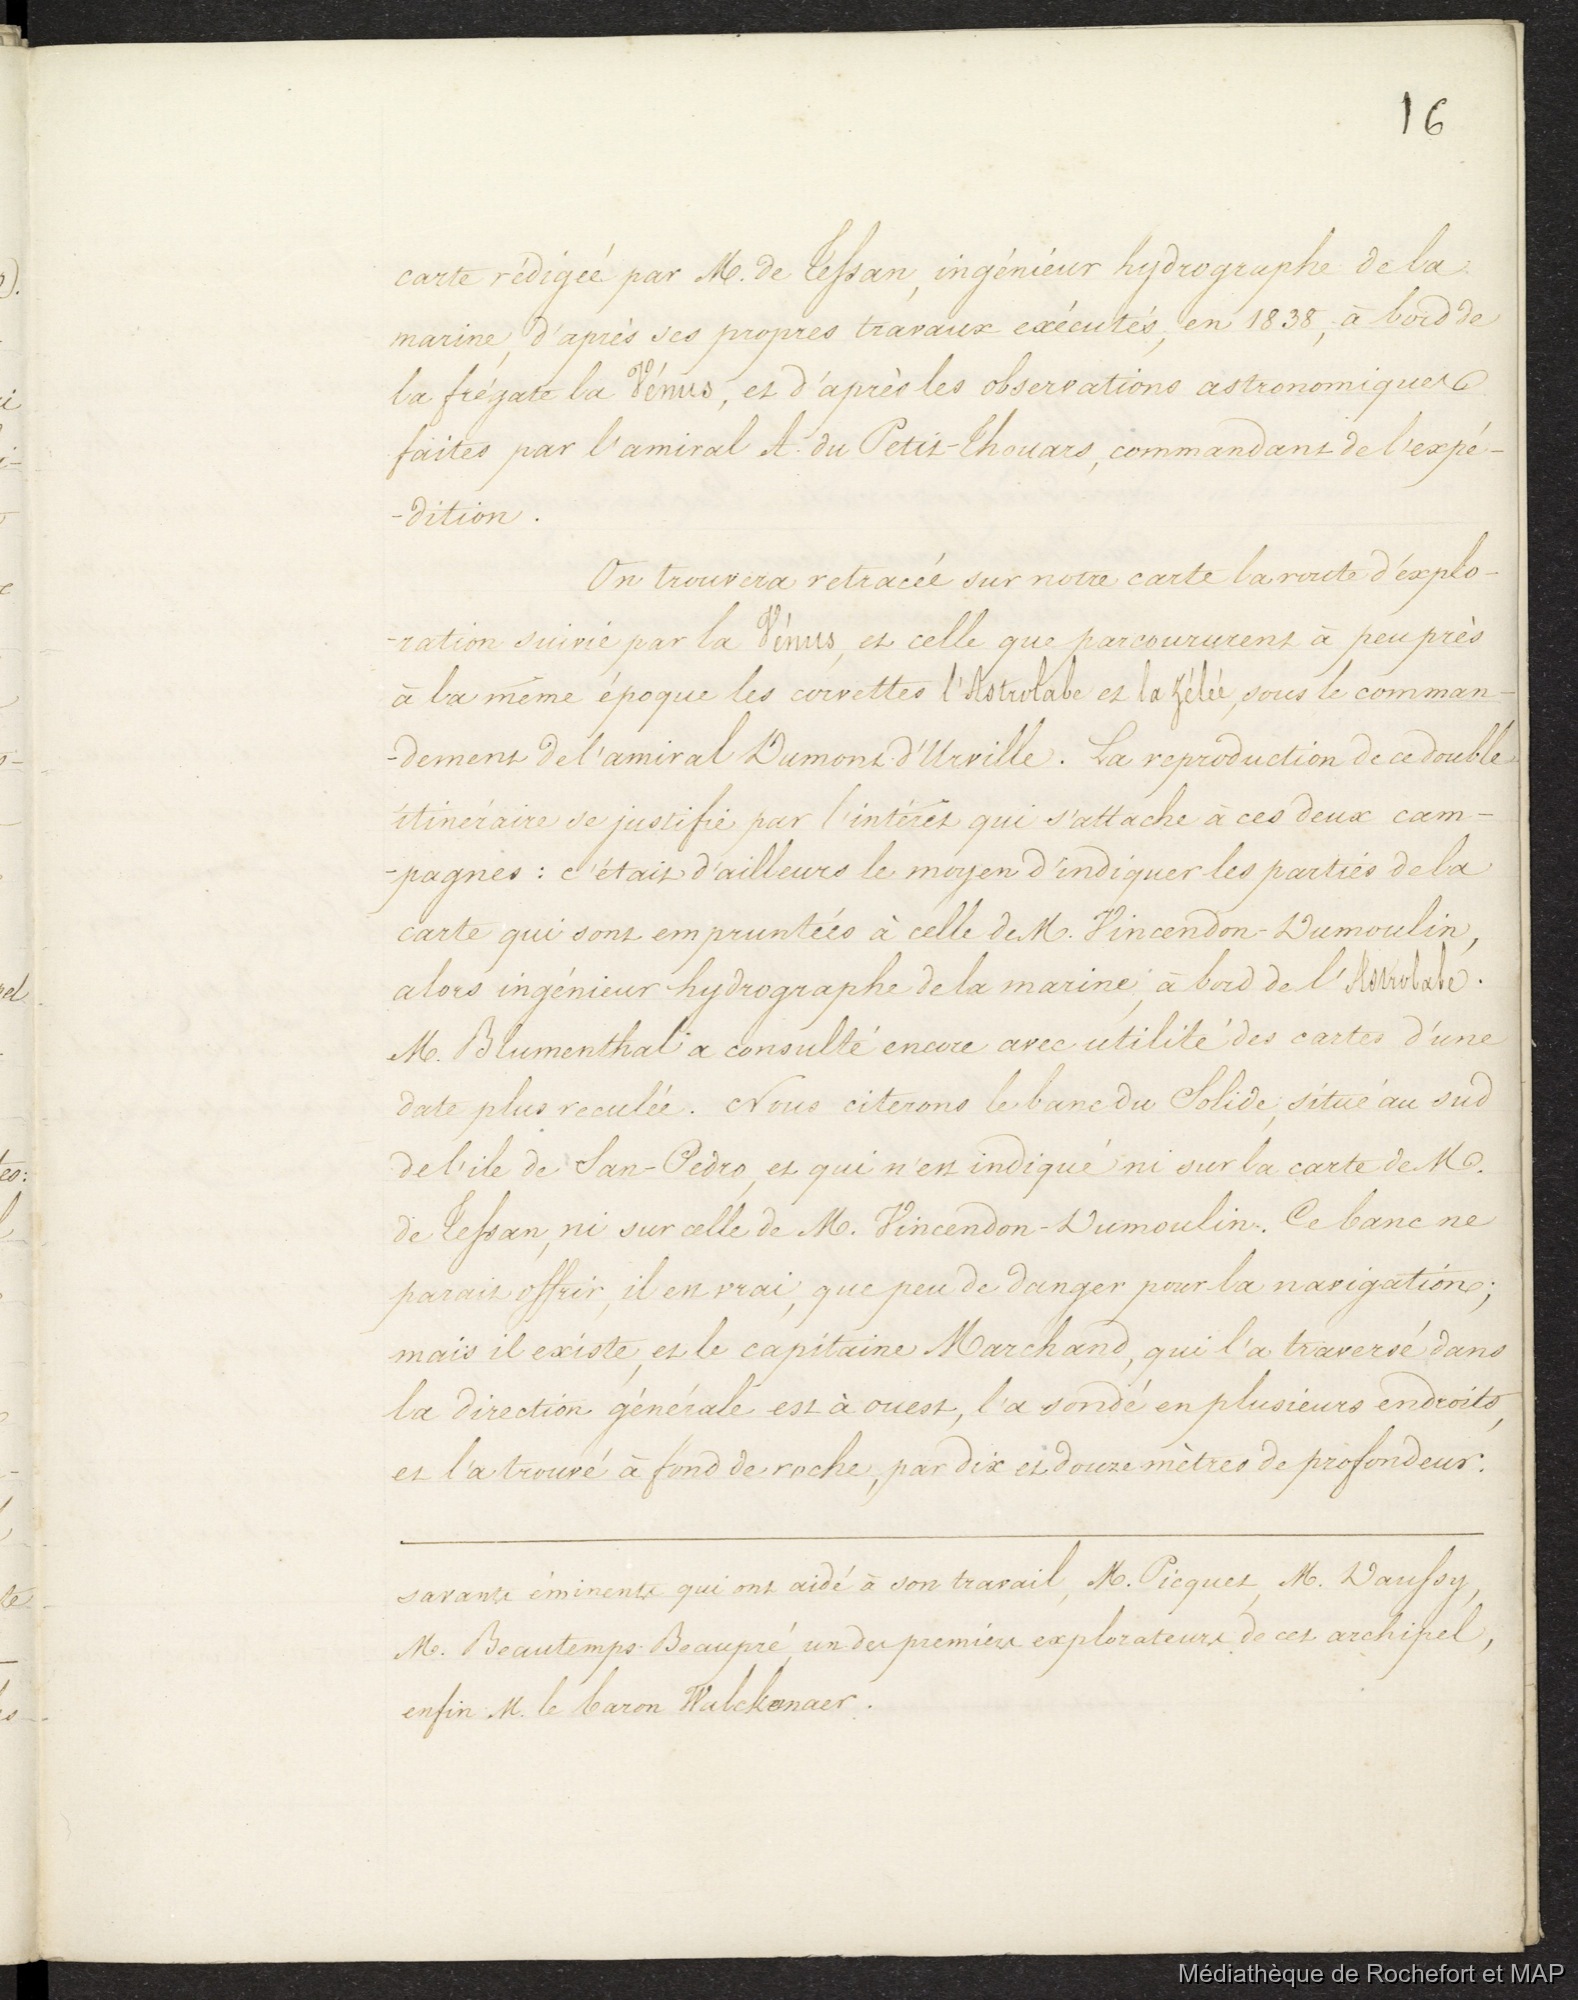 16
carte rédigée par M. de Tessan, ingénieur hydrographe de la
marine, d'après ses propres travaux exécutés, en 1838, à bord de
la frégate la Vénus, et d'après les observations astronomiques
faites par l'amiral A. du Petit-Thouars, commandant de l'expé-
-dition.
On trouvera retracée sur notre carte la route d'explo-
-ration suivie par la Vénus, et celle que parcoururent à peu près
à la même époque les corvettes l'Astrolabe et la Zélée, sous le comman-
-dement de l'amiral Dumont d'Urville. La reproduction de ce double
itinéraire se justifie par l'intérêt qui s'attache à ces deux cam-
-pagnes : c'était d'ailleurs le moyen d'indiquer les parties de la
carte qui sont empruntées à celle de M. Vincendon-Dumoulin,
alors ingénieur hydrographe de la marine, à bord de l'Astrolabe.
M. Blumenthal a consulté encore avec utilité des cartes d'une
date plus reculée. Nous citerons le banc du Solide, situé au sud
de l'ile de San-Pedro, et qui n'est indiqué ni sur la carte de M.
de Tessan, ni sur celle de M. Vincendon-Dumoulin. Ce banc ne
parait offrir, il est vrai, que peu de danger pour la navigation;
mais il existe, et le capitaine Marchand, qui l'a traversé dans
la direction générale est à ouest, l'a sondé en plusieurs endroits,
et l'a trouvé à fond de roche, par dix et douze mètres de profondeur.
savants éminents qui ont aidé à son travail, M. Picquet, M. Daussy,
M. Beautemps-Beaupré, un des premiers explorateurs de cet archipel,
enfin M. le baron Walckenaer.
Médiathèque de Rochefort et MAP